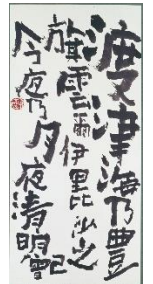 渡津海乃豊
旗雲爾伊里比沙之
今夜乃月夜清明己曽